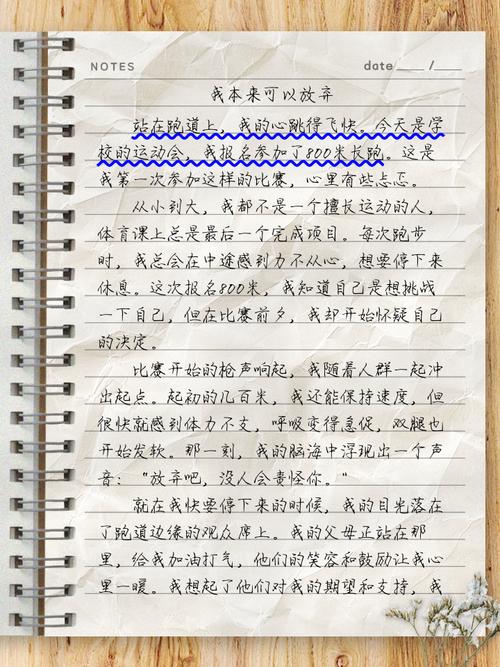 NOTES
date ____ /___
我本来可以放弃
站在跑道上，我的心跳得飞快。今天是学
校的运动会，我报名参加了800米长跑。这是
我第一次参加这样的比赛，心里有些忐忑。
从小到大，我都不是一个擅长运动的人，
体育课上总是最后一个完成项目。每次跑步
时，我总会在中途感到力不从心，想要停下来
休息。这次报名800米，我知道自己是想挑战
一下自己，但在比赛前夕，我却开始怀疑自己
的决定。
比赛开始的枪声响起，我随着人群一起冲
出起点。起初的几百米，我还能保持速度，但
很快就感到体力不支，呼吸变得急促，双腿也
开始发软。那一刻，我的脑海中浮现出一个声
音："放弃吧，没人会责怪你。"
就在我快要停下来的时候，我的目光落在
了跑道边缘的观众席上。我的父母正站在那
里，给我加油打气，他们的笑容和鼓励让我心
里一暖。我想起了他们对我的期望和支持，我